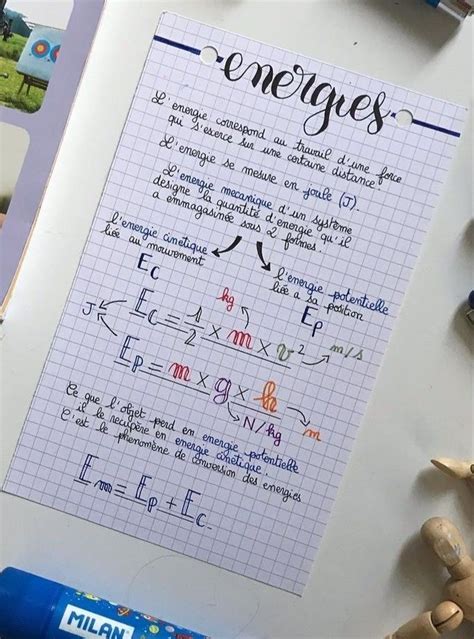 energies
L'énergie correspond au travail d'une force
qui s'exerce sur une certaine distance.
L'énergie se mesure en joule (J).
L'énergie mécanique d'un système
désigne la quantité d'énergie qu'il
a emmagasinée sous 2 formes.
l'énergie cinétique
liée au mouvement
Ec
l'énergie potentielle
liée a sa position
Ep
kg
J
Ec = 1/2 × m × v²
m/s
Ep = m × g × h
N/kg
m
Ce que l'objet perd en énergie potentielle
il le récupère en énergie cinétique.
C'est le phénomène de conversion des énergies
Em = Ep + Ec.
MILAN